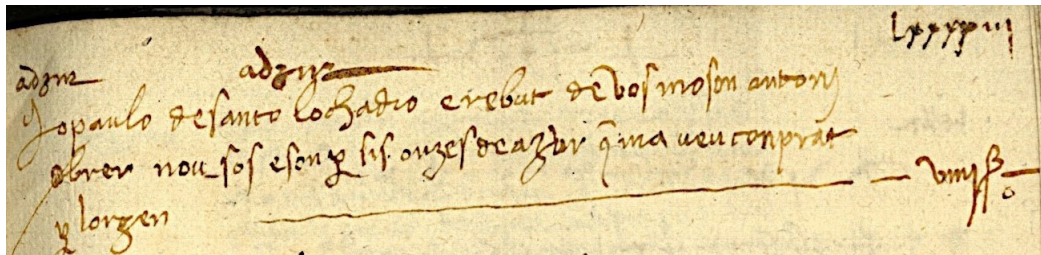 lxxxxvi
adzur adzur
Jo paulo de santo lochadio e rebut de vos moson antoni
obrer nou sos e son p sis onzes de azur q ma veu conprat
p lorgen viiij ß o